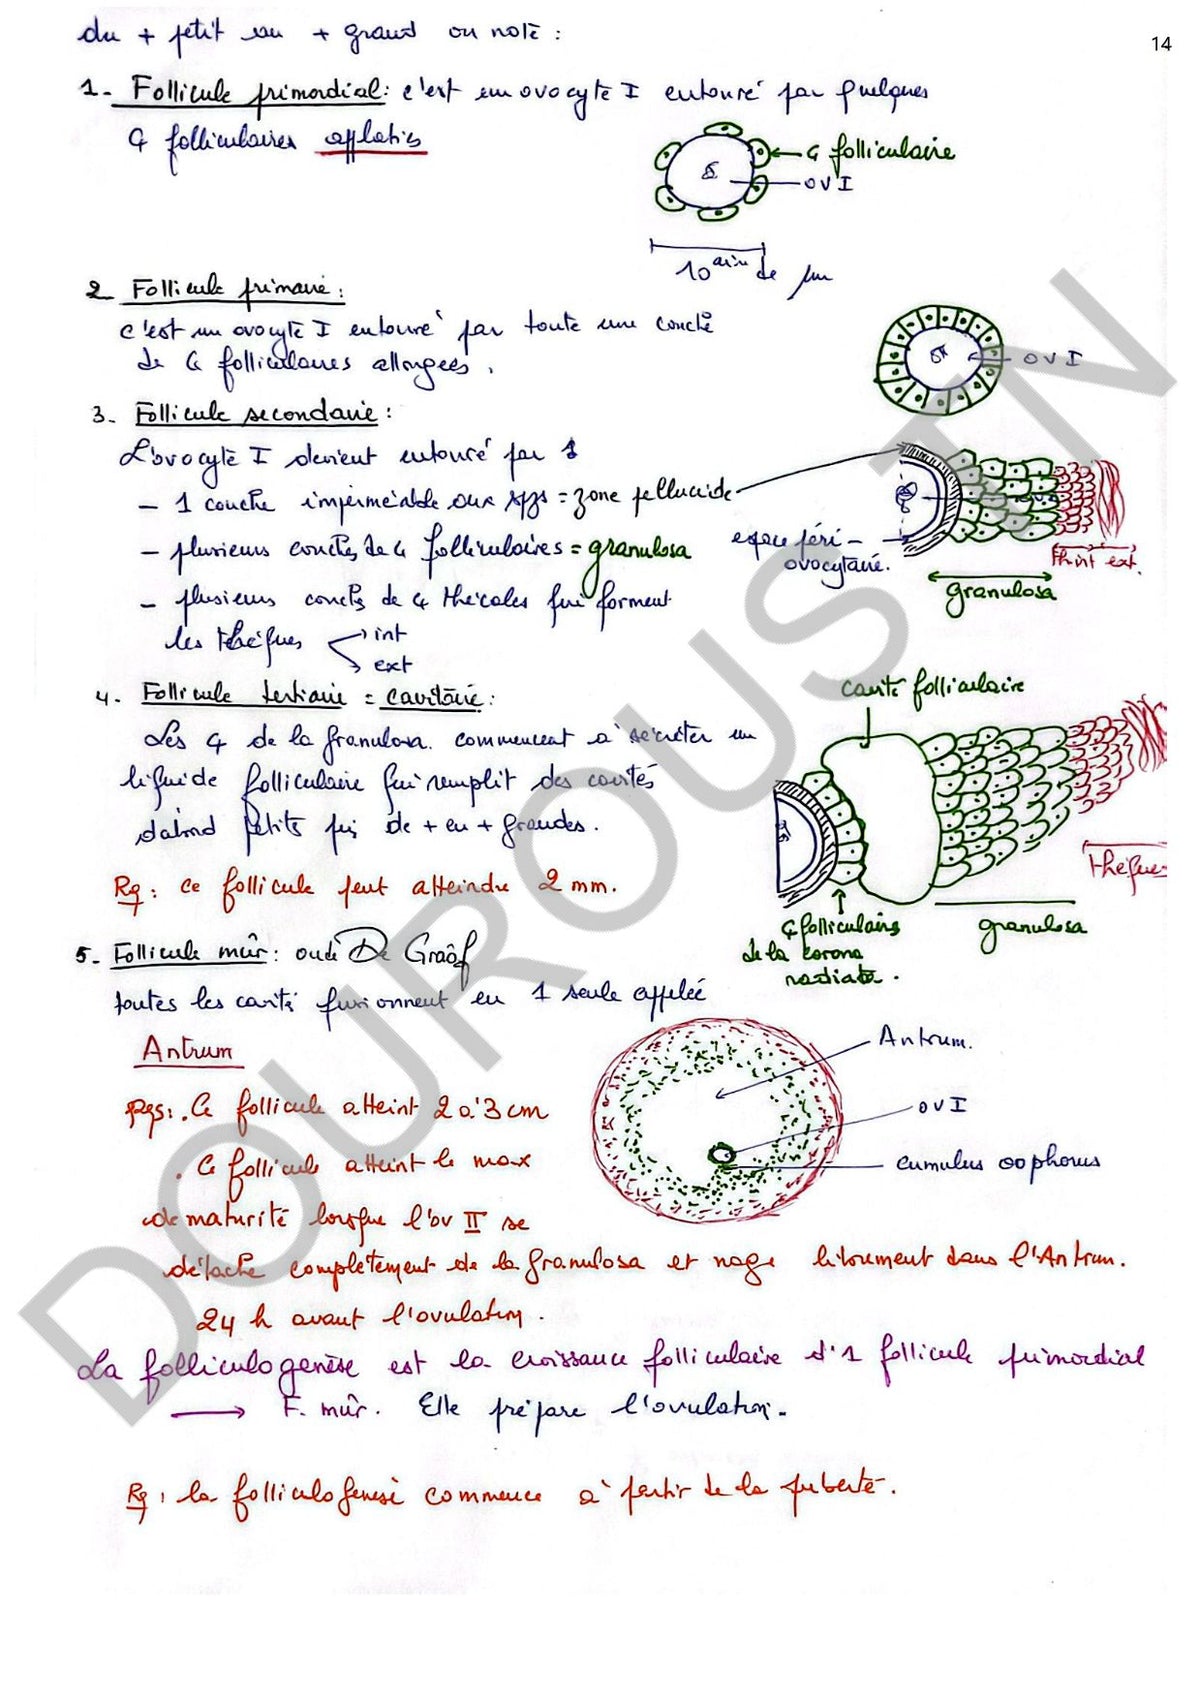 du + petit au + grand on note :
14
1- Follicule primordial : c'est un ovocyte I entouré par quelques
C folliculaires applatis
C folliculaire
ov I
10 aine de µm
2 Follicule primaire :
c'est un ovocyte I entouré par toute une couche
de C folliculaires allongées.
ov I
3- Follicule secondaire :
L'ovocyte I devient entouré par
- 1 couche imperméable aux spzs = zone pellucide
- plusieurs couches de C folliculaires = granulosa
espace péri-
ovocytaire.
th int ext.
granulosa
- plusieurs couches de C thécales qui forment
les thèques
int
ext
4- Follicule tertiaire = cavitaire :
cavité folliculaire
Les C de la granulosa commencent à sécréter un
liquide folliculaire qui remplit des cavités
d'abord petits puis de + en + grandes.
Rq : ce follicule peut atteindre 2 mm.
thèques
C folliculaires
de la corona
radiata.
granulosa
5- Follicule mûr : ou de De Graâf
toutes les cavités fusionnent en 1 seule appelée
Antrum
Antrum.
ov I
cumulus oophorus
Rqs : . Ce follicule atteint 2 à 3 cm
. Ce follicule atteint le max
de maturité lorsque l'ov II se
détache complètement de la granulosa et nage librement dans l'Antrum.
24 h avant l'ovulation.
La folliculogenèse est la croissance folliculaire d'1 follicule primordial
→ F. mûr. Elle prépare l'ovulation.
Rq : la folliculogenèse commence à partir de la puberté.
DOUROUS TN